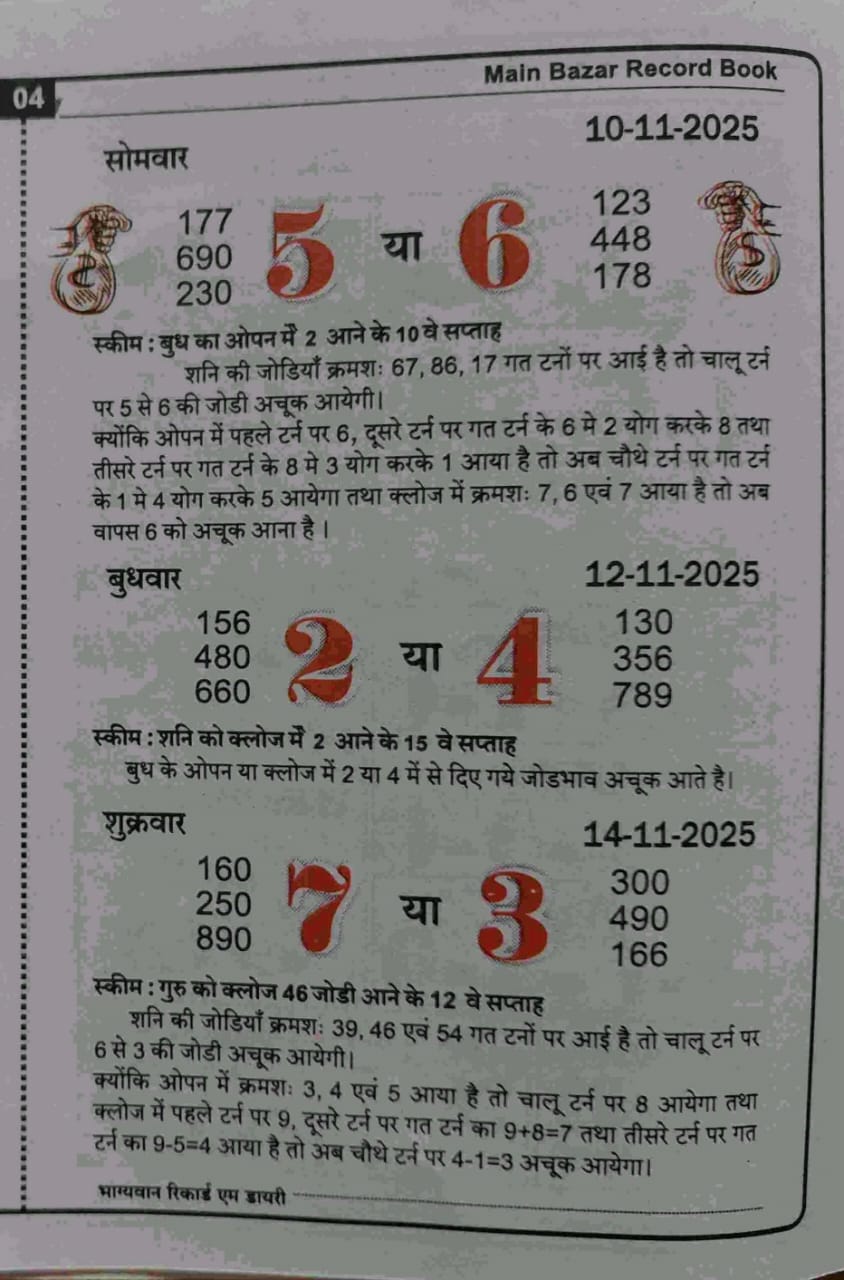 Main Bazar Record Book
04
10-11-2025
सोमवार
177
690
230
5 या 6
123
448
178
स्कीम : बुध का ओपन में 2 आने के 10 वे सप्ताह
शनि की जोडियाँ क्रमशः 67, 86, 17 गत टर्नो पर आई है तो चालू टर्न
पर 5 से 6 की जोडी अचूक आयेगी।
क्योंकि ओपन में पहले टर्न पर 6, दूसरे टर्न पर गत टर्न के 6 मे 2 योग करके 8 तथा
तीसरे टर्न पर गत टर्न के 8 मे 3 योग करके 1 आया है तो अब चौथे टर्न पर गत टर्न
के 1 मे 4 योग करके 5 आयेगा तथा क्लोज में क्रमशः 7, 6 एवं 7 आया है तो अब
वापस 6 को अचूक आना है ।
बुधवार
12-11-2025
156
480
660
2 या 4
130
356
789
स्कीम : शनि को क्लोज में 2 आने के 15 वे सप्ताह
बुध के ओपन या क्लोज में 2 या 4 में से दिए गये जोडभाव अचूक आते है।
शुक्रवार
14-11-2025
160
250
890
7 या 3
300
490
166
स्कीम : गुरु को क्लोज 46 जोडी आने के 12 वे सप्ताह
शनि की जोडियाँ क्रमशः 39, 46 एवं 54 गत टर्नो पर आई है तो चालू टर्न पर
6 से 3 की जोडी अचूक आयेगी।
क्योंकि ओपन में क्रमशः 3, 4 एवं 5 आया है तो चालू टर्न पर 8 आयेगा तथा
क्लोज में पहले टर्न पर 9, दूसरे टर्न पर गत टर्न का 9+8=7 तथा तीसरे टर्न पर गत
टर्न का 9-5=4 आया है तो अब चौथे टर्न पर 4-1=3 अचूक आयेगा।
भाग्यवान रिकार्ड एम डायरी